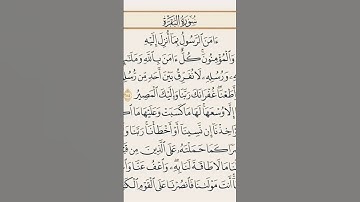 سُورَةُ الْبَقَرَةِ
ءَامَنَ ٱلرَّسُولُ بِمَآ أُنزِلَ إِلَيْهِ
وَٱلْمُؤْمِنُونَ كُلٌّ ءَامَنَ بِٱللَّهِ وَمَلَـٰٓ
ـهِۦ وَرُسُلِهِۦ لَا نُفَرِّقُ بَيْنَ أَحَدٍ مِّن رُّسُلِ
أَطَعْنَا غُفْرَانَكَ رَبَّنَا وَإِلَيْكَ ٱلْمَصِيرُ
إِلَّا وُسْعَهَا لَهَا مَا كَسَبَتْ وَعَلَيْهَا مَا ٱكْ
ؤَاخِذْنَآ إِن نَّسِينَآ أَوْ أَخْطَأْنَا رَبَّنَا وَ
رًا كَمَا حَمَلْتَهُۥ عَلَى ٱلَّذِينَ مِن قَ
نَا مَا لَا طَاقَةَ لَنَا بِهِۦ وَٱعْفُ عَنَّا وَٱ
أَنتَ مَوْلَىٰنَا فَٱنصُرْنَا عَلَى ٱلْقَوْمِ ٱلْكَ